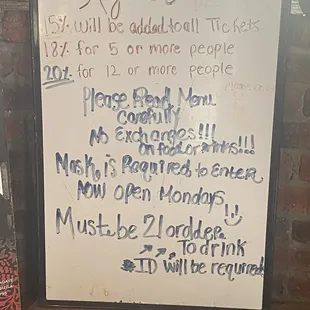 15% will be added to all Tickets
18% for 5 or more people
20% for 12 or more people
Please Read Menu
Carefully
No Exchanges!!!
on food or drinks!!!
Mask is Required to Enter
NOW open Mondays
Must be 21 or older
To drink
ID will be required